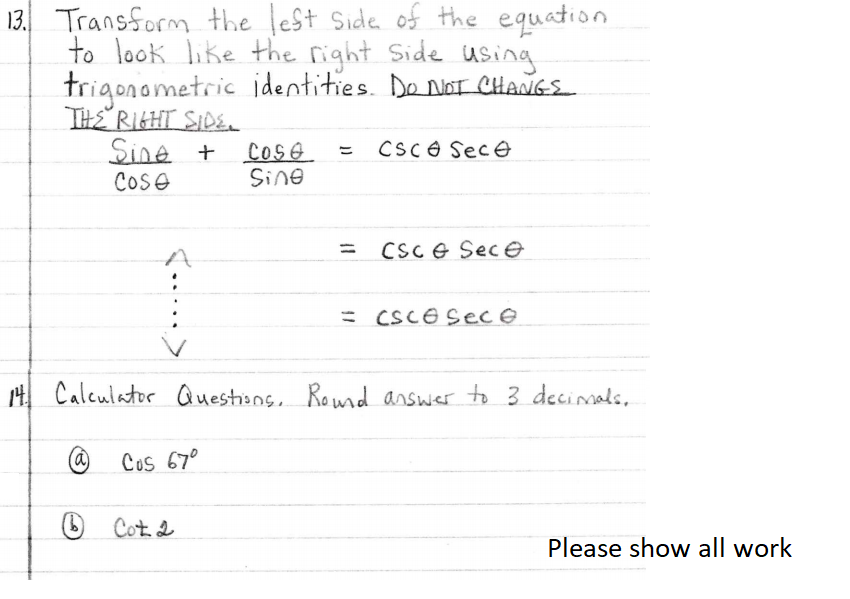 13. Transform the left side of the equation
to look like the right side using
trigonometric identities. DO NOT CHANGE
THE RIGHT SIDE.
Sinθ + Cosθ = CSCθ Secθ
Cosθ Sinθ
= CSCθ Secθ
= CSCθ Secθ
14. Calculator Questions. Round answer to 3 decimals.
(a) Cos 67°
(b) Cot 2
Please show all work